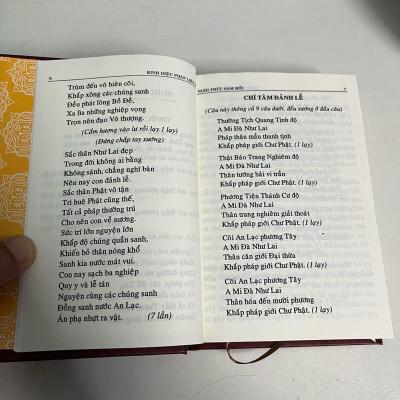 KINH DIỆU PHÁP LIÊN
Trùm đến vô biên cõi,
Khắp xông các chúng sanh
Đều phát lòng Bồ Đề,
Xa lìa những nghiệp vọng
Trọn nên đạo Vô thượng.
(Cắm hương vào lư rồi lạy 1 lạy)
(Đứng chấp tay xướng)
Sắc thân Như Lai đẹp
Trong đời không ai bằng
Không sánh, chẳng nghĩ bàn
Nên nay con đảnh lễ.
Sắc thân Phật vô tận
Trí huệ Phật cũng thế,
Tất cả pháp thường trú
Cho nên con về nương.
Sức trí lớn nguyện lớn
Khắp độ chúng quần sanh,
Khiến bỏ thân nóng khổ
Sanh kia nước mát vui.
Con nay sạch ba nghiệp
Quy y và lễ tán
Nguyện cùng các chúng sanh
Đồng sanh nước An Lạc.
Án phạ nhựt ra vật. (7 lần)
NGHI THỨC SÁM HỐI
CHÍ TÂM ĐẢNH LỄ
(Câu này thông cả 9 câu dưới, đều xướng ở đầu câu)
Thường Tịch Quang Tịnh độ
A Mi Đà Như Lai
Pháp thân mầu thanh tịnh
Khắp pháp giới Chư Phật. (1 lạy)
Thật Báo Trang Nghiêm độ
A Mi Đà Như Lai
Thân tướng hải vi trần
Khắp pháp giới Chư Phật. (1 lạy)
Phương Tiện Thánh Cư độ
A Mi Đà Như Lai
Thân trang nghiêm giải thoát
Khắp pháp giới Chư Phật. (1 lạy)
Cõi An Lạc phương Tây
A Mi Đà Như Lai
Thân căn giới Đại thừa
Khắp pháp giới Chư Phật. (1 lạy)
Cõi An Lạc phương Tây
A Mi Đà Như Lai
Thân hóa đến mười phương
Khắp pháp giới Chư Phật. (1 lạy)